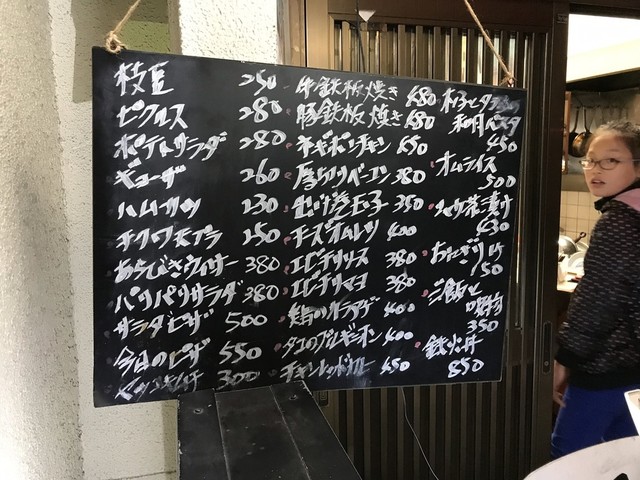 枝豆 250
ピクルス 280
ポテトサラダ 280
ギョーザ 260
ハムカツ 230
チクワ天プラ 250
あらびきウィンナー 380
パリパリサラダ 380
サラダピザ 500
今日のピザ 550
300
牛鉄板焼き 680
豚鉄板焼き 680
ネギポンチャン 650
厚切りベーコン 380
出し巻玉子 350
チーズオムレツ 400
エビチリソース 380
エビチリマヨ 380
400
タコのブルギニオン 400
チキンレッドカレー 650
和風パスタ
650
オムライス
500
茶漬け
430
おにぎり1ケ
50
ご飯と
350
鉄火丼
850